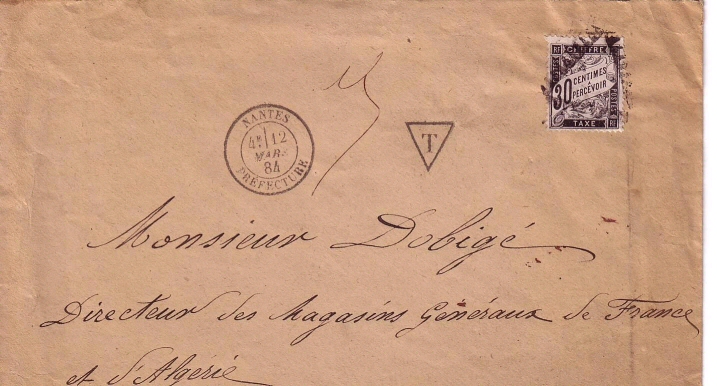 CHIFFRE
RF
RF
POSTES
POSTES
30 CENTIMES
À PERCEVOIR
TAXE
NANTES
4E 12
MARS
84
PRÉFECTURE
T
Monsieur Dobigé
Directeur des Magasins Généraux de France
et d'Algérie